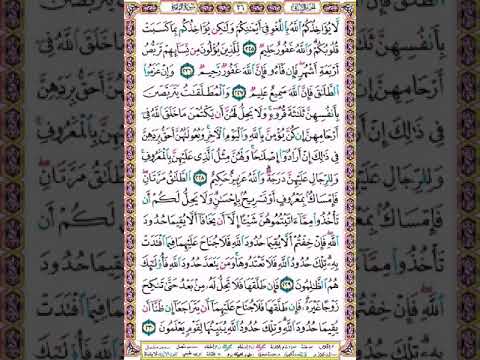 ٣٦
لَّا يُؤَاخِذُكُمُ ٱللَّهُ بِٱللَّغْوِ فِىٓ أَيْمَـٰنِكُمْ وَلَـٰكِن يُؤَاخِذُكُم بِمَا كَسَبَتْ
قُلُوبُكُمْ وَٱللَّهُ غَفُورٌ حَلِيمٌ ٢٢٥ لِّلَّذِينَ يُؤْلُونَ مِن نِّسَآئِهِمْ تَرَبُّصُ
أَرْبَعَةِ أَشْهُرٍ فَإِن فَآءُو فَإِنَّ ٱللَّهَ غَفُورٌ رَّحِيمٌ ٢٢٦ وَإِنْ عَزَمُوا۟
ٱلطَّلَـٰقَ فَإِنَّ ٱللَّهَ سَمِيعٌ عَلِيمٌ ٢٢٧ وَٱلْمُطَلَّقَـٰتُ يَتَرَبَّصْنَ
بِأَنفُسِهِنَّ ثَلَـٰثَةَ قُرُوٓءٍ وَلَا يَحِلُّ لَهُنَّ أَن يَكْتُمْنَ مَا خَلَقَ ٱللَّهُ فِىٓ
أَرْحَامِهِنَّ إِن كُنَّ يُؤْمِنَّ بِٱللَّهِ وَٱلْيَوْمِ ٱلْـَٔاخِرِ وَبُعُولَتُهُنَّ أَحَقُّ بِرَدِّهِنَّ
فِى ذَٰلِكَ إِنْ أَرَادُوٓا۟ إِصْلَـٰحًا وَلَهُنَّ مِثْلُ ٱلَّذِى عَلَيْهِنَّ بِٱلْمَعْرُوفِ
وَلِلرِّجَالِ عَلَيْهِنَّ دَرَجَةٌ وَٱللَّهُ عَزِيزٌ حَكِيمٌ ٢٢٨ ٱلطَّلَـٰقُ مَرَّتَانِ
فَإِمْسَاكٌۢ بِمَعْرُوفٍ أَوْ تَسْرِيحٌۢ بِإِحْسَـٰنٍ وَلَا يَحِلُّ لَكُمْ أَن
تَأْخُذُوا۟ مِمَّآ ءَاتَيْتُمُوهُنَّ شَيْـًٔا إِلَّآ أَن يَخَافَآ أَلَّا يُقِيمَا حُدُودَ
ٱللَّهِ فَإِنْ خِفْتُمْ أَلَّا يُقِيمَا حُدُودَ ٱللَّهِ فَلَا جُنَاحَ عَلَيْهِمَا فِيمَا ٱفْتَدَتْ
بِهِۦ تِلْكَ حُدُودُ ٱللَّهِ فَلَا تَعْتَدُوهَا وَمَن يَتَعَدَّ حُدُودَ ٱللَّهِ فَأُو۟لَـٰٓئِكَ
هُمُ ٱلظَّـٰلِمُونَ ٢٢٩ فَإِن طَلَّقَهَا فَلَا تَحِلُّ لَهُۥ مِنۢ بَعْدُ حَتَّىٰ تَنكِحَ
زَوْجًا غَيْرَهُۥ فَإِن طَلَّقَهَا فَلَا جُنَاحَ عَلَيْهِمَآ أَن يَتَرَاجَعَآ إِن ظَنَّآ أَن
يُقِيمَا حُدُودَ ٱللَّهِ وَتِلْكَ حُدُودُ ٱللَّهِ يُبَيِّنُهَا لِقَوْمٍ يَعْلَمُونَ ٢٣٠